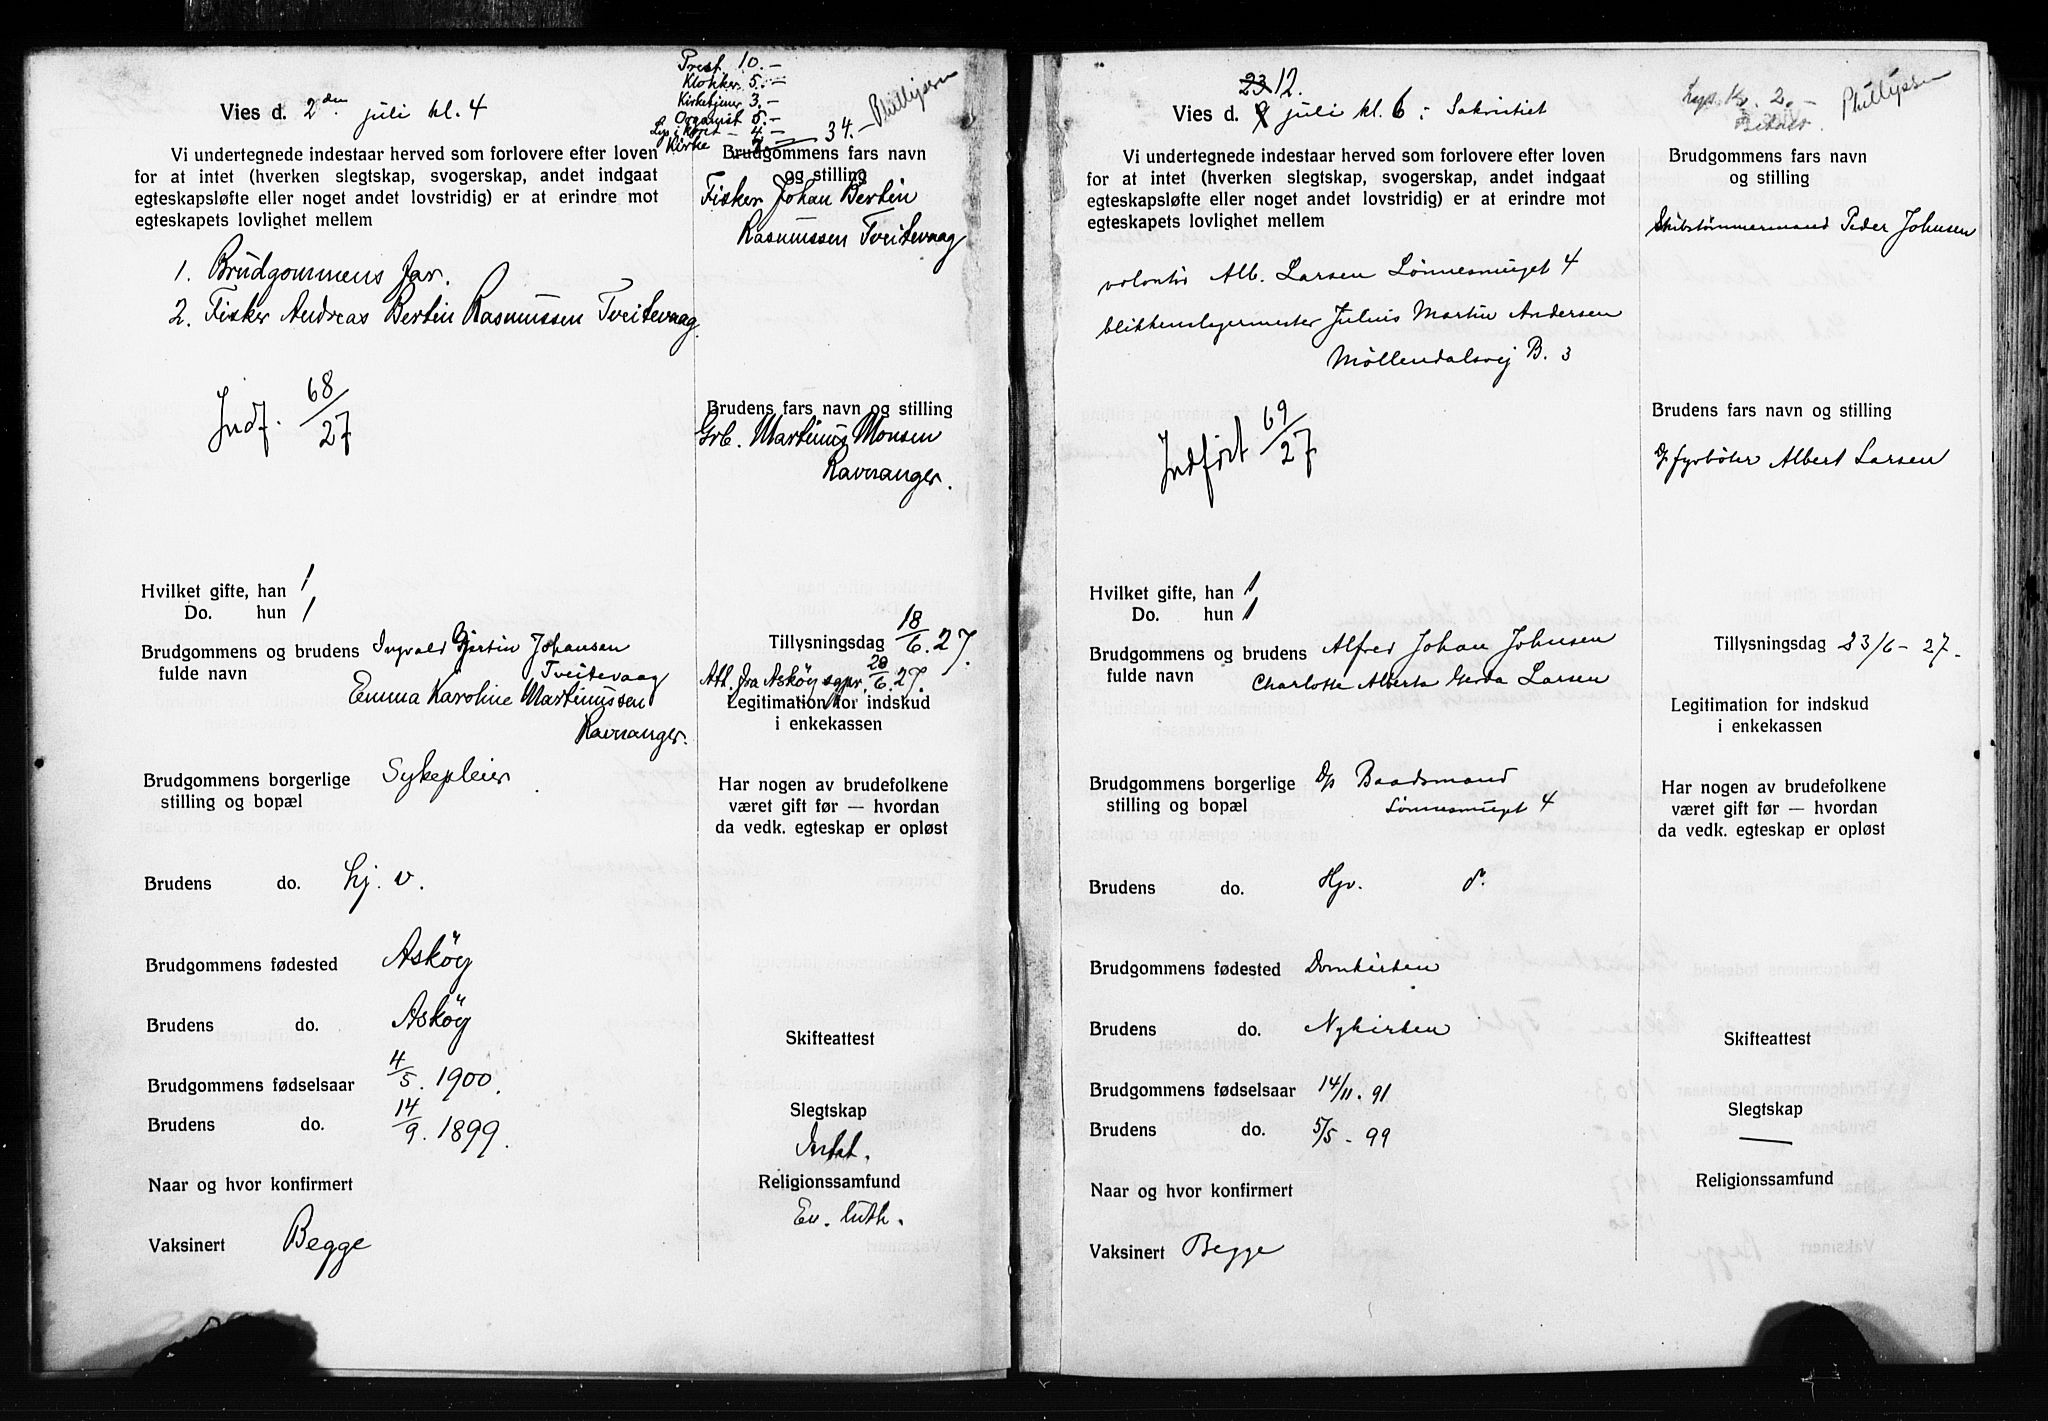 Prest 10.-
Klokker 5.-
Kirketjener 3.-
Organist 5.-
Lys i Koret - 4.-
Kirke 7.-
34.-
Phillipsen
Vies d. 2den juli kl. 4
Vi undertegnede indestaar herved som forlovere efter loven
for at intet (hverken slegtskap, svogerskap, andet indgaat
egteskapsløfte eller noget andet lovstridig) er at erindre mot
egteskapets lovlighet mellem
1. Brudgommens far.
2. Fisker Andreas Bertin Rasmussen Tveitevaag
Indf. 68/27
Brudgommens fars navn
og stilling
Fisker Johan Bertin
Rasmussen Tveitevaag
Brudens fars navn og stilling
Grb. Martinus Monsen
Ravnanger.
Hvilket gifte, han 1
Do. hun 1
Brudgommens og brudens
fulde navn
Ingvald Gjertin Johansen
Tveitevaag
Emma Karoline Martinussen
Ravnanger.
Tillysningsdag 18/6.27.
Att. fra Askøy sgpr. 28/6.27.
Legitimation for indskud
i enkekassen
Brudgommens borgerlige
stilling og bopæl
Sykepleier
Har nogen av brudefolkene
været gift før — hvordan
da vedk. egteskap er opløst
Brudens do. hj. v.
Brudgommens fødested Askøy
Brudens do. Askøy
Skifteattest
Brudgommens fødselsaar 4/5. 1900.
Brudens do. 14/9. 1899.
Slegtskap
Intet.
Naar og hvor konfirmert
Religionssamfund
Ev. luth.
Vaksinert Begge
23 12.
Vies d. 9 juli kl. 6 i Sakristiet
Lys Kr. 2.-
Betalt.
Phillipsen
Vi undertegnede indestaar herved som forlovere efter loven
for at intet (hverken slegtskap, svogerskap, andet indgaat
egteskapsløfte eller noget andet lovstridig) er at erindre mot
egteskapets lovlighet mellem
volontør Alb. Larsen Lønnesmuget 4
blikkenslagermester Julius Martin Andersen
Møllendalsvej B. 3
Indført 69/27
Brudgommens fars navn
og stilling
Skibstømmermand Peder Johnsen
Brudens fars navn og stilling
Dp fyrbøter Albert Larsen
Hvilket gifte, han 1
Do. hun 1
Brudgommens og brudens
fulde navn
Alfred Johan Johnsen
Charlotte Alberta Gerda Larsen
Tillysningsdag 23/6 - 27.
Legitimation for indskud
i enkekassen
Brudgommens borgerlige
stilling og bopæl
Dp Baadsmand
Lønnesmuget 4
Har nogen av brudefolkene
været gift før — hvordan
da vedk. egteskap er opløst
Brudens do. Hjv. do.
Brudgommens fødested Domkirken
Brudens do. Nykirken
Skifteattest
Brudgommens fødselsaar 14/11. 91
Brudens do. 5/5 - 99
Slegtskap
—
Naar og hvor konfirmert
Religionssamfund
Vaksinert Begge